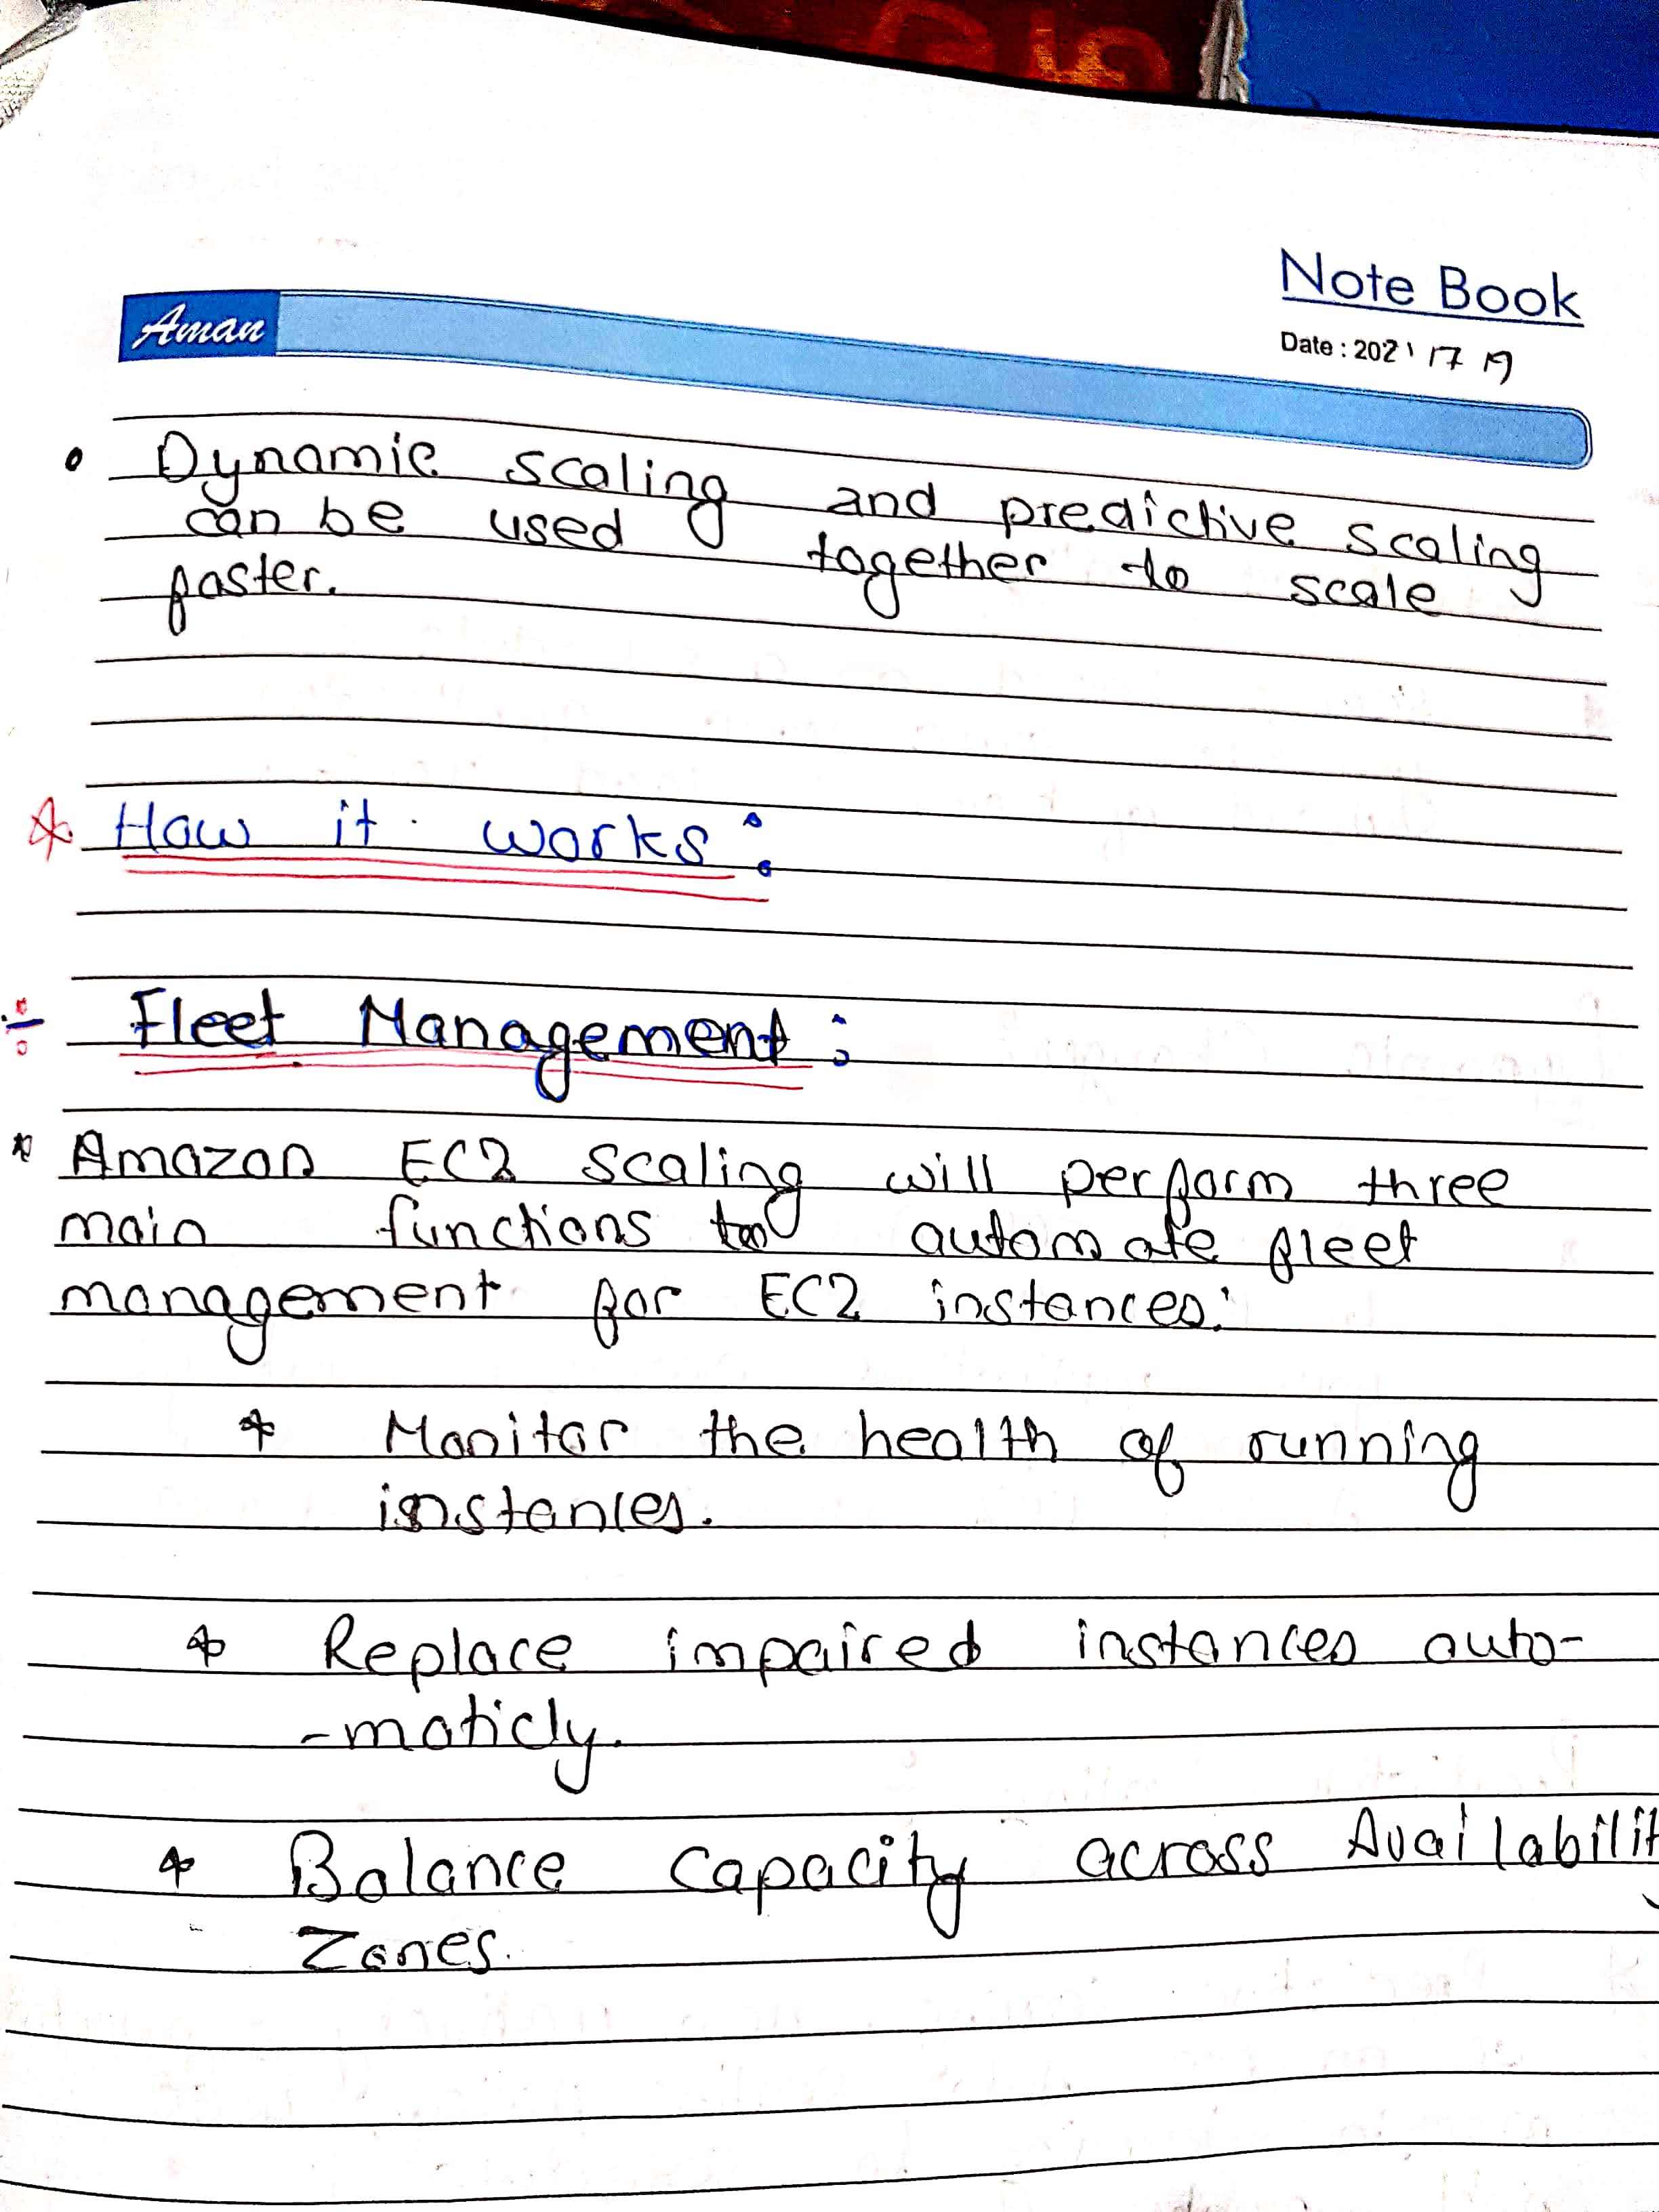 Note Book
Aman
Date : 2021 17 19
• Dynamic scaling and predictive scaling
can be used together to scale
faster.
* How it works:
÷ Fleet Management:
* Amazon EC2 scaling will perform three
main functions to automate fleet
management for EC2 instances:
* Monitor the health of running
instances.
* Replace impaired instances auto-
-maticly.
* Balance capacity across Availabilit
Zones.